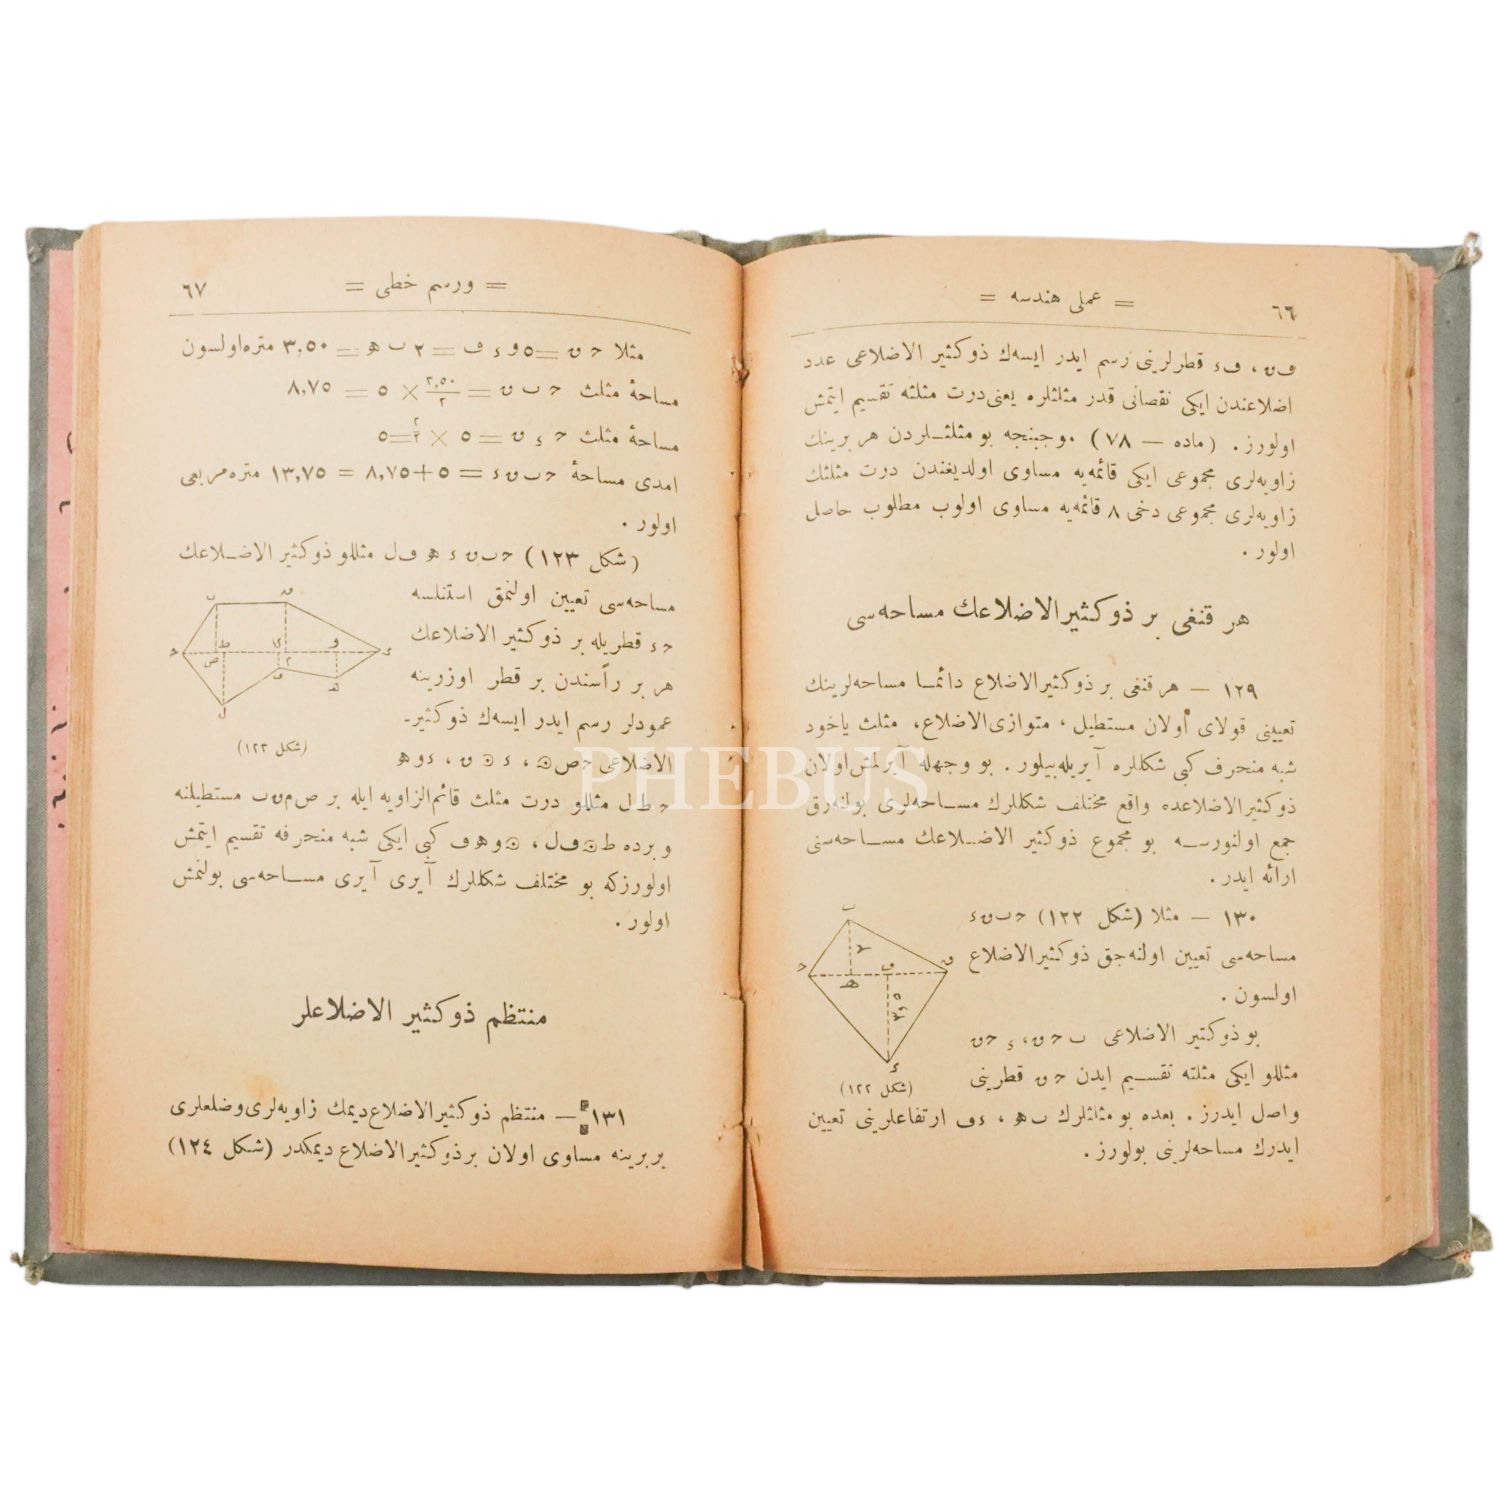 ٦٦
= عملی هندسه =
ں ، ف ء قطرلرینی رسم ایدر ایسەك ذوکثیر الاضلاعی عدد
اضلاعندن ایکی نقصانی قدر مثلثلره یعنی درت مثلثه تقسیم ایتمش
اولورز . (ماده — ٧٨) موجبنجه بو مثلثلردن هر برینك
زاویه‌لری مجموعی ایکی قائمه‌یه مساوی اولدیغندن درت مثلثك
زاویه‌لری مجموعی دخی ٨ قائمه‌یه مساوی اولوب مطلوب حاصل
اولور .
هر قنغی بر ذوکثیر الاضلاعك مساحه‌سی
١٢٩ — هر قنغی بر ذوکثیر الاضلاع دائما مساحه‌لرینك
تعیینی قولای اولان مستطیل ، متوازی الاضلاع ، مثلث یاخود
شبه منحرف کبی شکللره آیریله‌بیلور . بو وجهله آیرلمش اولان
ذوکثیر الاضلاعده واقع مختلف شکللرك مساحه‌لری بولنه‌رق
جمع اولنورسه بو مجموع ذوکثیر الاضلاعك مساحه‌سنی
ارائه ایدر .
١٣٠ — مثلا (شکل ١٢٢) حـ ٮ ں ء
مساحه‌سی تعیین اولنه‌جق ذوکثیر الاضلاع
اولسون .
بو ذوکثیر الاضلاعی ٮ حـ ں ، ء حـ ں
مثللو ایکی مثلثه تقسیم ایدن حـ ں قطرینی
واصل ایدرز . بعده بو مثلثلرك ٮ هـ ، ء ف ارتفاعلرینی تعیین
ایدرك مساحه‌لرینی بولورز .
ٮ
٢
حـ
هـ
ف
ں
٣,٥
ء
(شکل ١٢٢)
= ورسم خطی =
٦٧
مثلا حـ ں = ٥ و ء ف = ٢ ٮ هـ = ٣,٥٠ متره اولسون
مساحهٔ مثلث حـ ٮ ں = ٣,٥٠/٢ × ٥ = ٨,٧٥
مساحهٔ مثلث حـ ء ں = ٥ × ٢/٢ = ٥
امدی مساحهٔ حـ ٮ ں ء = ٥ + ٨,٧٥ = ١٣,٧٥ متره مربعی
اولور .
(شکل ١٢٣) حـ ٮ ں ء هـ ف ل مثللو ذوکثیر الاضلاعك
مساحه‌سی تعیین اولنمق استنلسه
حـ ء قطریله بر ذوکثیر الاضلاعك
هر بر رأسندن بر قطر اوزرینه
عمودلر رسم ایدر ایسەك ذوکثیر
الاضلاعی
حـ ط ل مثللو درت مثلث قائم الزاویه ایله بر ص م ں ٮ مستطیلنه
و برده کبی ایکی شبه منحرفه تقسیم ایتمش
اولورزکه بو مختلف شکللرك آیری آیری مساحه‌سی بولنمش
اولور .
ٮ
ں
حـ
ص
ط
م
و
ء
ف
هـ
ل
(شکل ١٢٣)
منتظم ذوکثیر الاضلاعلر
١٣١ — منتظم ذوکثیر الاضلاع دیمك زاویه‌لری وضلعلری
بربرینه مساوی اولان بر ذوکثیر الاضلاع دیمکدر (شکل ١٢٤)
PHEBUS